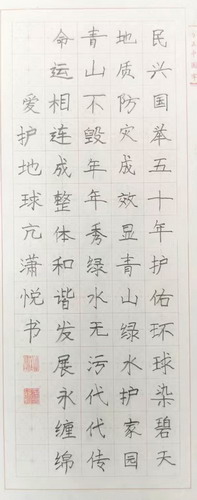 民兴国举五十年护佑环球染碧天
地质防灾成效显青山绿水护家园
青山不毁年年秀绿水无污代代传
命运相连成整体和谐发展永缠绵
爱护地球亢潇悦书